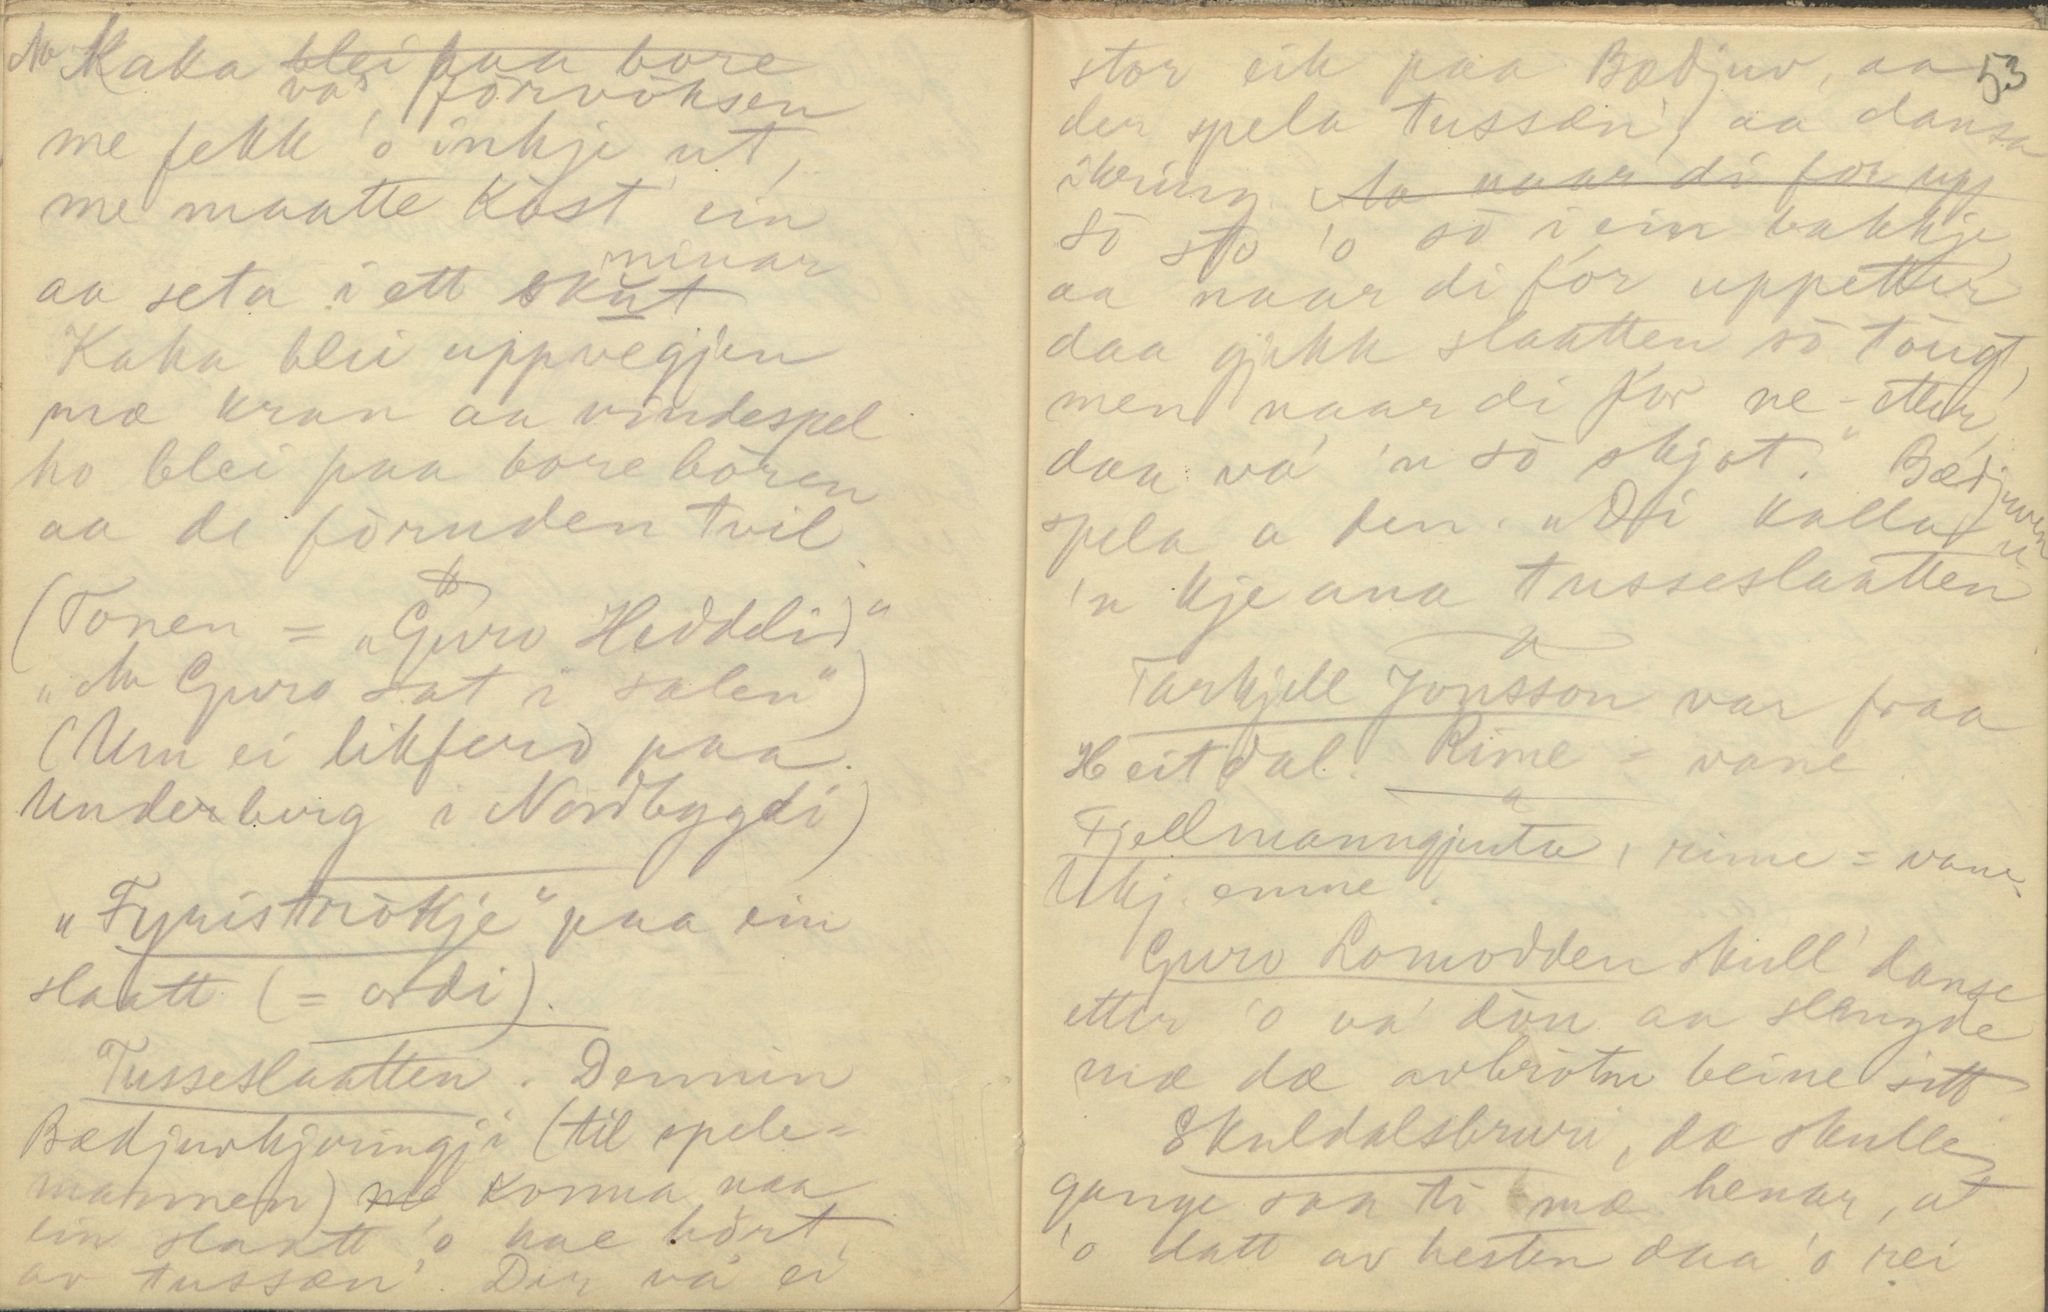 Aa Kaka blei paa bore
va' förvöksen
me fekk 'o inkje ut,
me maatte kost' ein
minar
aa seta i ett skut
Kaka blei uppvegjen
mæ kran aa vindespel
ho blei paa bore bören
aa de förruden tvil
(Tonen = „Guro Heddeli"
„Aa Guro sat i salen")
(Um ei likferd paa
Underberg i Nordbygdi)
„Fyriströkje" paa ein
slaatt (= ordi).
Tusseslaatten. Dennin
Bædjuvkjeringji (til spele-
mannen) ne konna naa
ein slaatt 'o hae hört
av tussæn'. Der va' ei
53
stor eik paa Bædjuv, aa
der spela tussæn', aa dansa
ikring. Aa naar di for upp
Sö sto 'o sö i ein bakkje,
aa naar di for uppetter
daa gjekk slaatten sö tougt,
men naar di for ne-etter,
daa va' 'n sö skjot." Bædjuven
spela a den. „Di kalla
'n kje ana tusseslaatten"
Tarkjell Jonsson var fraa
Heitdal. Rime = vane
Fjellmanngjenta, rime = vane.
Ukj. emne.
Guro Lomodden skull' danse
etter 'o va' dön aa slengde
mæ dæ avbrötne beine sitt
Skuldalsbruri, dæ skulle
gange saa ti mæ henar, at
'o datt av hesten daa 'o rei